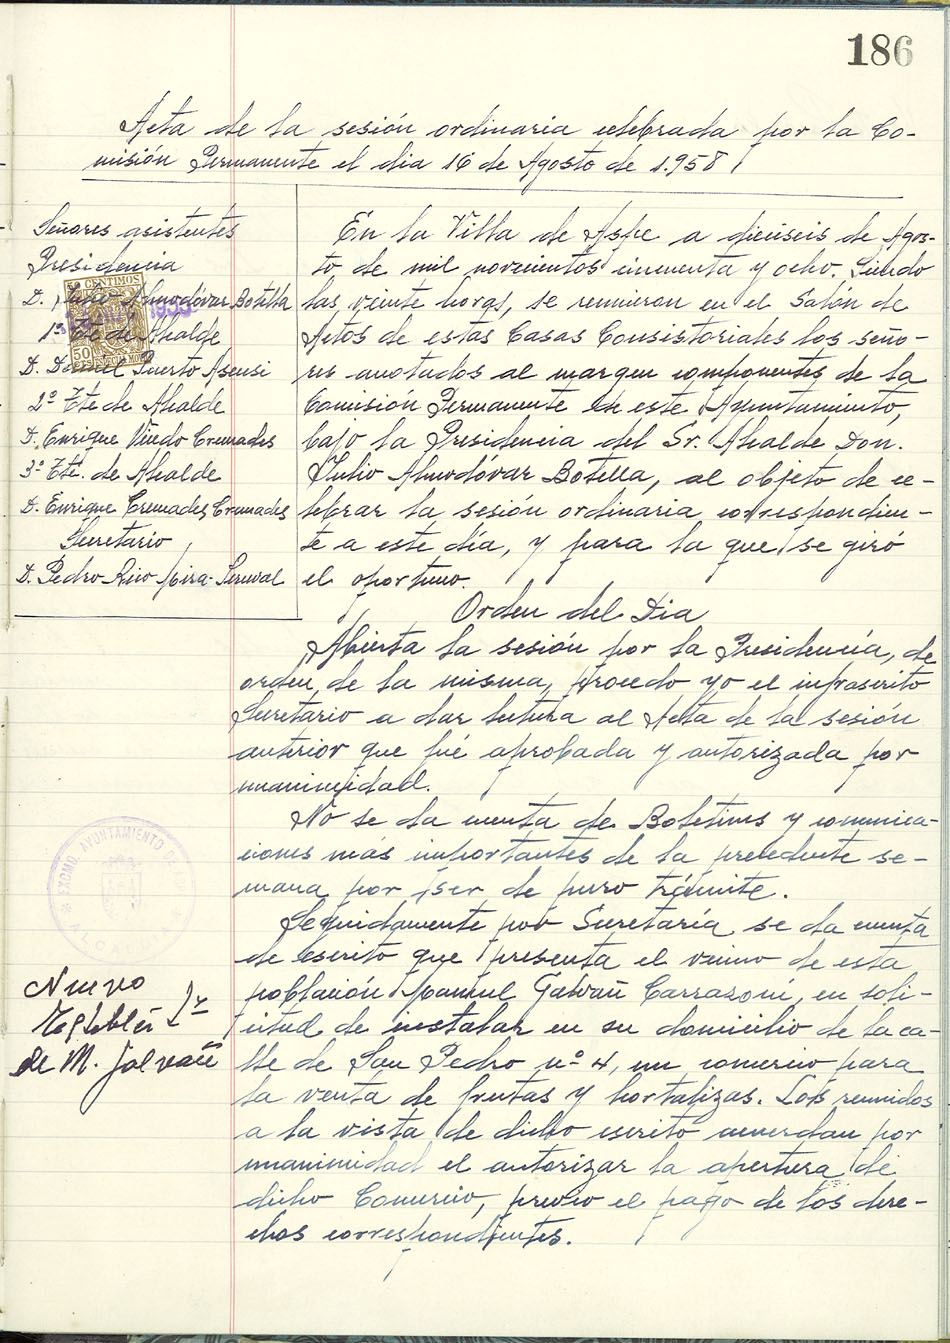 186
Acta de la sesión ordinaria celebrada por la Co-
misión Permanente el dia 16 de Agosto de 1.958
Señores asistentes
Presidencia
D. Julio Almodóvar Botella
1º Tte de Alcalde
D. Daniel Puerto Asensi
2º Tte de Alcalde
D. Enrique Viñedo Cremades
3º Tte. de Alcalde
D. Enrique Cremades Cremades
Secretario
D. Pedro Rico Mira-Perceval
CENTIMOS
50
En la Villa de Aspe a dieciseis de Agos-
to de mil novecientos cincuenta y ocho. Siendo
las veinte horas, se reunieron en el Salón de
Actos de estas Casas Consistoriales los seño-
res anotados al margen componentes de la
Comisión Permanente de este Ayuntamiento,
bajo la Presidencia del Sr. Alcalde Don.
Julio Almodóvar Botella, al objeto de ce-
lebrar la sesión ordinaria correspondien-
te a este día, y para la que se giró
el oportuno.
Orden del Dia
Abierta la sesión por la Presidencia, de
orden de la misma, procedo yo el infrascrito
Secretario a dar lectura al Acta de la sesión
anterior que fué aprobada y autorizada por
unanimidad.
No se da cuenta de Boletines y comunica-
ciones más importantes de la precedente se-
mana por ser de puro trámite.
Seguidamente por Secretaría se da cuenta
de escrito que presenta el vecino de esta
población Manuel Galvañ Carrazoni, en soli-
citud de instalar en su domicilio de la ca-
lle de San Pedro nº 4, un comercio para
la venta de frutas y hortalizas. Los reunidos
a la vista de dicho escrito acuerdan por
unanimidad el autorizar la apertura de
dicho Comercio, previo el pago de los dere-
chos correspondientes.
EXCMO. AYUNTAMIENTO DE
ALCALDIA
Nuevo
de M. Galvañ